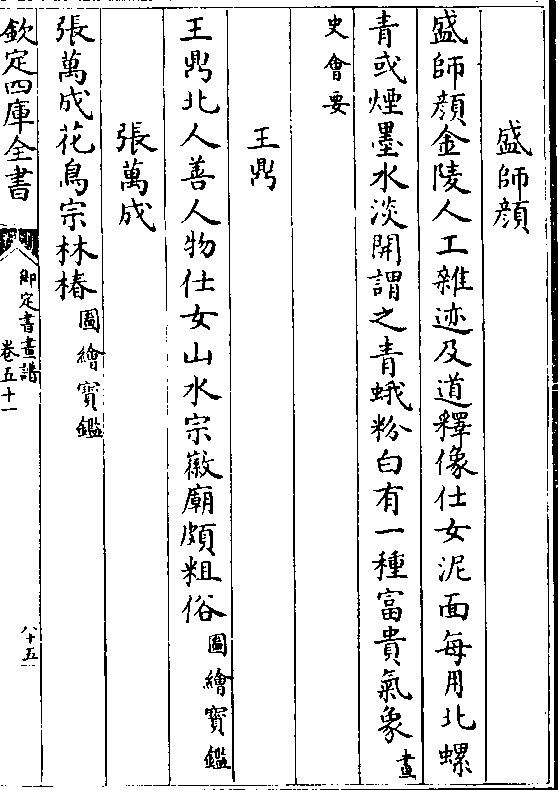 盛師顔
盛師顔金陵人工雜迹及道釋像仕女泥面每用北螺
青或煙墨水淡開謂之青蛾粉白有一種富貴氣象畫
史會要
王鼎
王鼎北人善人物仕女山水宗徽廟頗粗俗圖繪寳鑑
張萬成
張萬成花鳥宗林椿圖繪寳鑑
欽定四庫全書
御定書畫譜
卷五十一
八十五